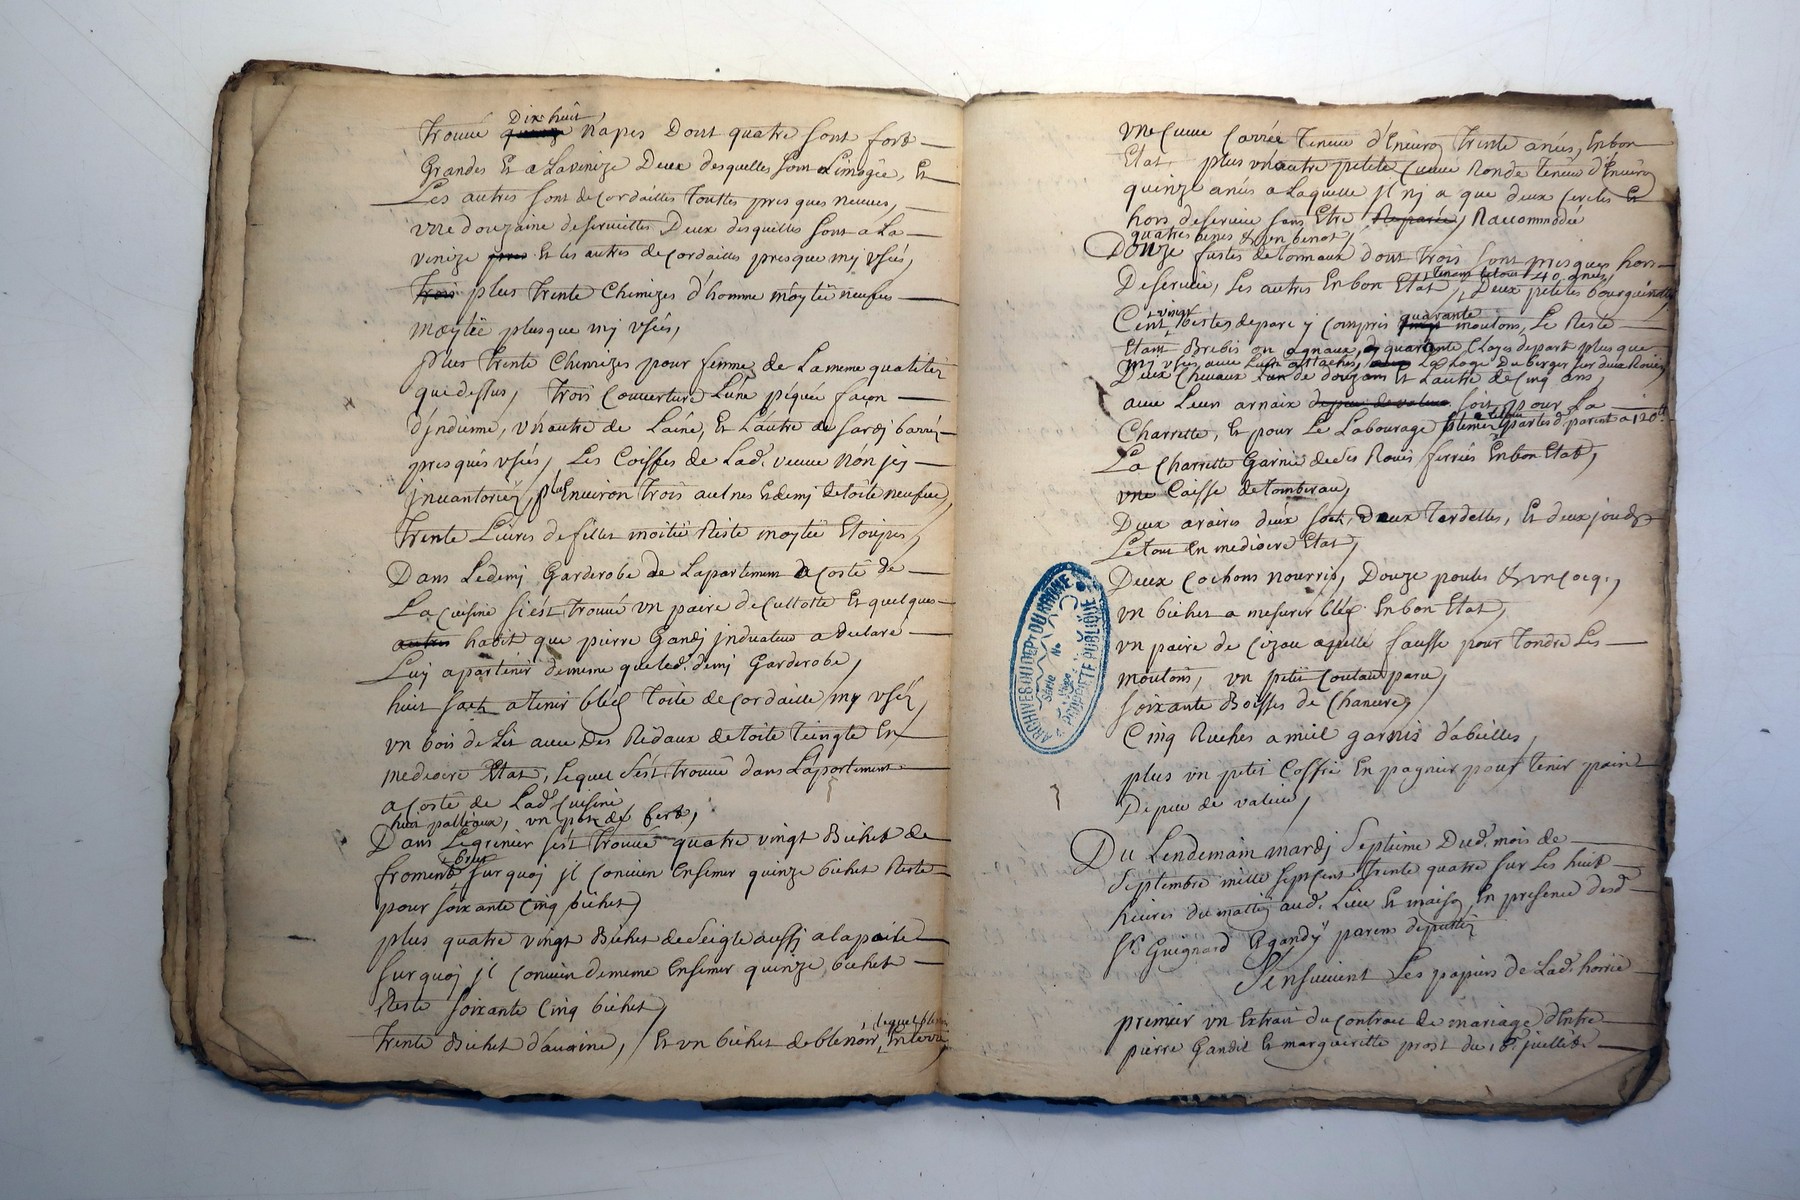 Dix huit,
trouvé quinze napes dont quatre sont fort
Grandes Et a Lavenize Deux desquelles sont a Limogée, Et
Les autres sont de cordailles touttes presques neuves,
vne douzaine de serviettes Deux desquelles sont a La
venize Et les autres de cordailles presque mj vsés,
trois plus trente Chemizes d'homme moytié neufves
moytié plusque mj vsées,
plus trente Chemizes pour femme de La meme qualitéz
que dessus, trois couverture Lune piquée façon
d'jndienne, vn autre de Laine, Et L'autre de sardj barréz
presqués vsées, Les Coiffes de Lad. veuve Non jcj
jnvantoriéz, plus Environ trois aulnes Et demj de toile neufve,
trente Livres de fillet moitié Riste moytié Etoupes,
Dans Le demj Garderobe de Lapartement a costé de
La cuisine s'est trouvé vn paire de cullotte Et quelques
autres habit que pierre Gandj jnduateur a declaré
Luy apartenir de meme que led. demj Garderobe,
huit sack a tenir bled toile de cordaille mj vséz,
vn bois de Lit avec Des Ridaux de toile teingte En
mediocre Etat, Lequel s'est trouvé dans L'apartement
a costé de Lad. Cuisine
huit patteaux, vn pot de ferd,
Dans Le grenier s'est trouvé quatre vingt Bichet de
froment brut sur quoj jl convien Ensemer quinze bichet Reste
pour soixante Cinq bichet,
plus quatre vingt Bichet de Seigle aussj a la
sur quoj jl convien de meme Ensemer quinze bichet
Reste soixante Cinq bichet,
, lequel
trente Bichet d'avoine, Et vn bichet de ble noir,
vne Cuve Carrée tenue d'Environ trente anées, En bon
Etat plus vn autre petite Cuve Ronde tenue d'Environ
quinze anés a Laquelle jl nj a que deux cercles Et
hors de service sans Etre Reparée, Raccommodée
quatres benes & vn benot,
Douze fustes de tonnaux dont trois sont presques hors
tenant le tout 40 anées,
De service, Les autres En bon Etat, Deux petites bourguinottes
vingt quarante
Cent bestes de parc y compris vingt moutons, Le Reste
Etant Brebis ou agnaux, & quarante Clayes de parc plus que
mj vsés avec Leurs attaches, La Loge Du berger sur deux Roues
Deux Chevaux Lun de douz ans Et Lautre de Cinq ans,
avec Leurs arnaix de peu de valeur soit pour La
Charrette, Et pour Le Labourage a 120
La Charrette Garnie de ses Roues ferrées En bon Etat,
vne Caisse de tombereau,
Deux araires deux sock, Deux tardelles, Et deux joucks
Le tout En mediocre Etat,
Deux Cochons nourris, Douze poules & vn cocq,
vn bichet a mesurer bled En bon Etat,
vn paire de Cizau apellé fausse pour tondre Les
moutons, vn petit Coutau
soixante Boisses de Chanvre,
Cinq Ruches a miel garnis d'abeilles,
plus vn petit Coffre En pagnier pour tenir pain
De peu de valeur,
Du Lendemain mardj Septieme Dud. mois de
Septembre mille sept cent trente quatre sur Les huit
heures du mattin aud. Lieu Et maison En presence desd
Sr Guignard & gandy parens deputtés
S'ensuivent Les papiers de Lad. horrie
premier vn Extrait du contract de mariage d'Entre
pierre Gandil Et margueritte prost du 18e juillet
ARCHIVES DU DEPt DU RHONE
Série
No
PROPRIÉTÉ PUBLIQUE